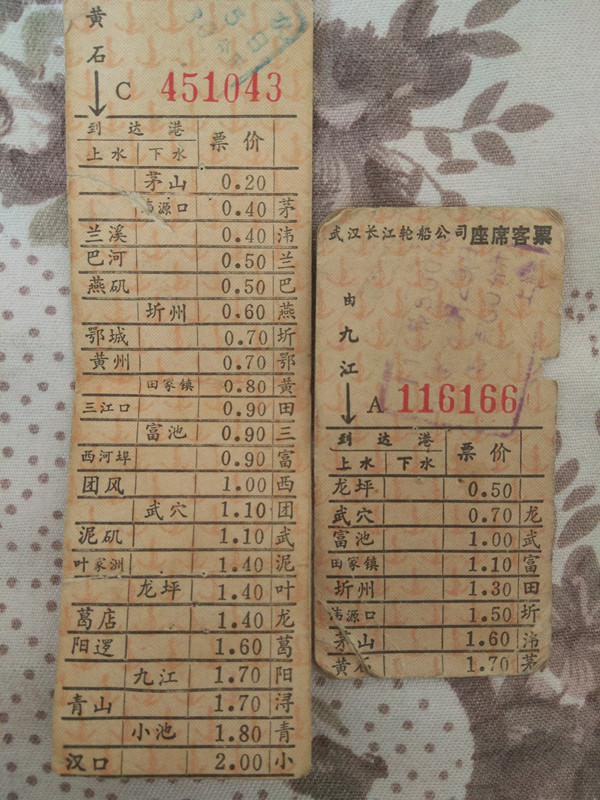 黄
石
C 451043
到 达 港 票 价
上水 下水
茅山 0.20
沩源口 0.40 茅
兰溪 0.40 沩
巴河 0.50 兰
燕矶 0.50 巴
圻州 0.60 燕
鄂城 0.70 圻
黄州 0.70 鄂
田家镇 0.80 黄
三江口 0.90 田
富池 0.90 三
西河埠 0.90 富
团风 1.00 西
武穴 1.10 团
泥矶 1.10 武
叶家洲 1.40 泥
龙坪 1.40 叶
葛店 1.40 龙
阳逻 1.60 葛
九江 1.70 阳
青山 1.70 浔
小池 1.80 青
汉口 2.00 小
武汉长江轮船公司座席客票
由
九
江
A 116166
到 达 港 票 价
上水 下水
龙坪 0.50
武穴 0.70 龙
富池 1.00 武
田家镇 1.10 富
圻州 1.30 田
沩源口 1.50 圻
茅山 1.60 沩
黄石 1.70 茅